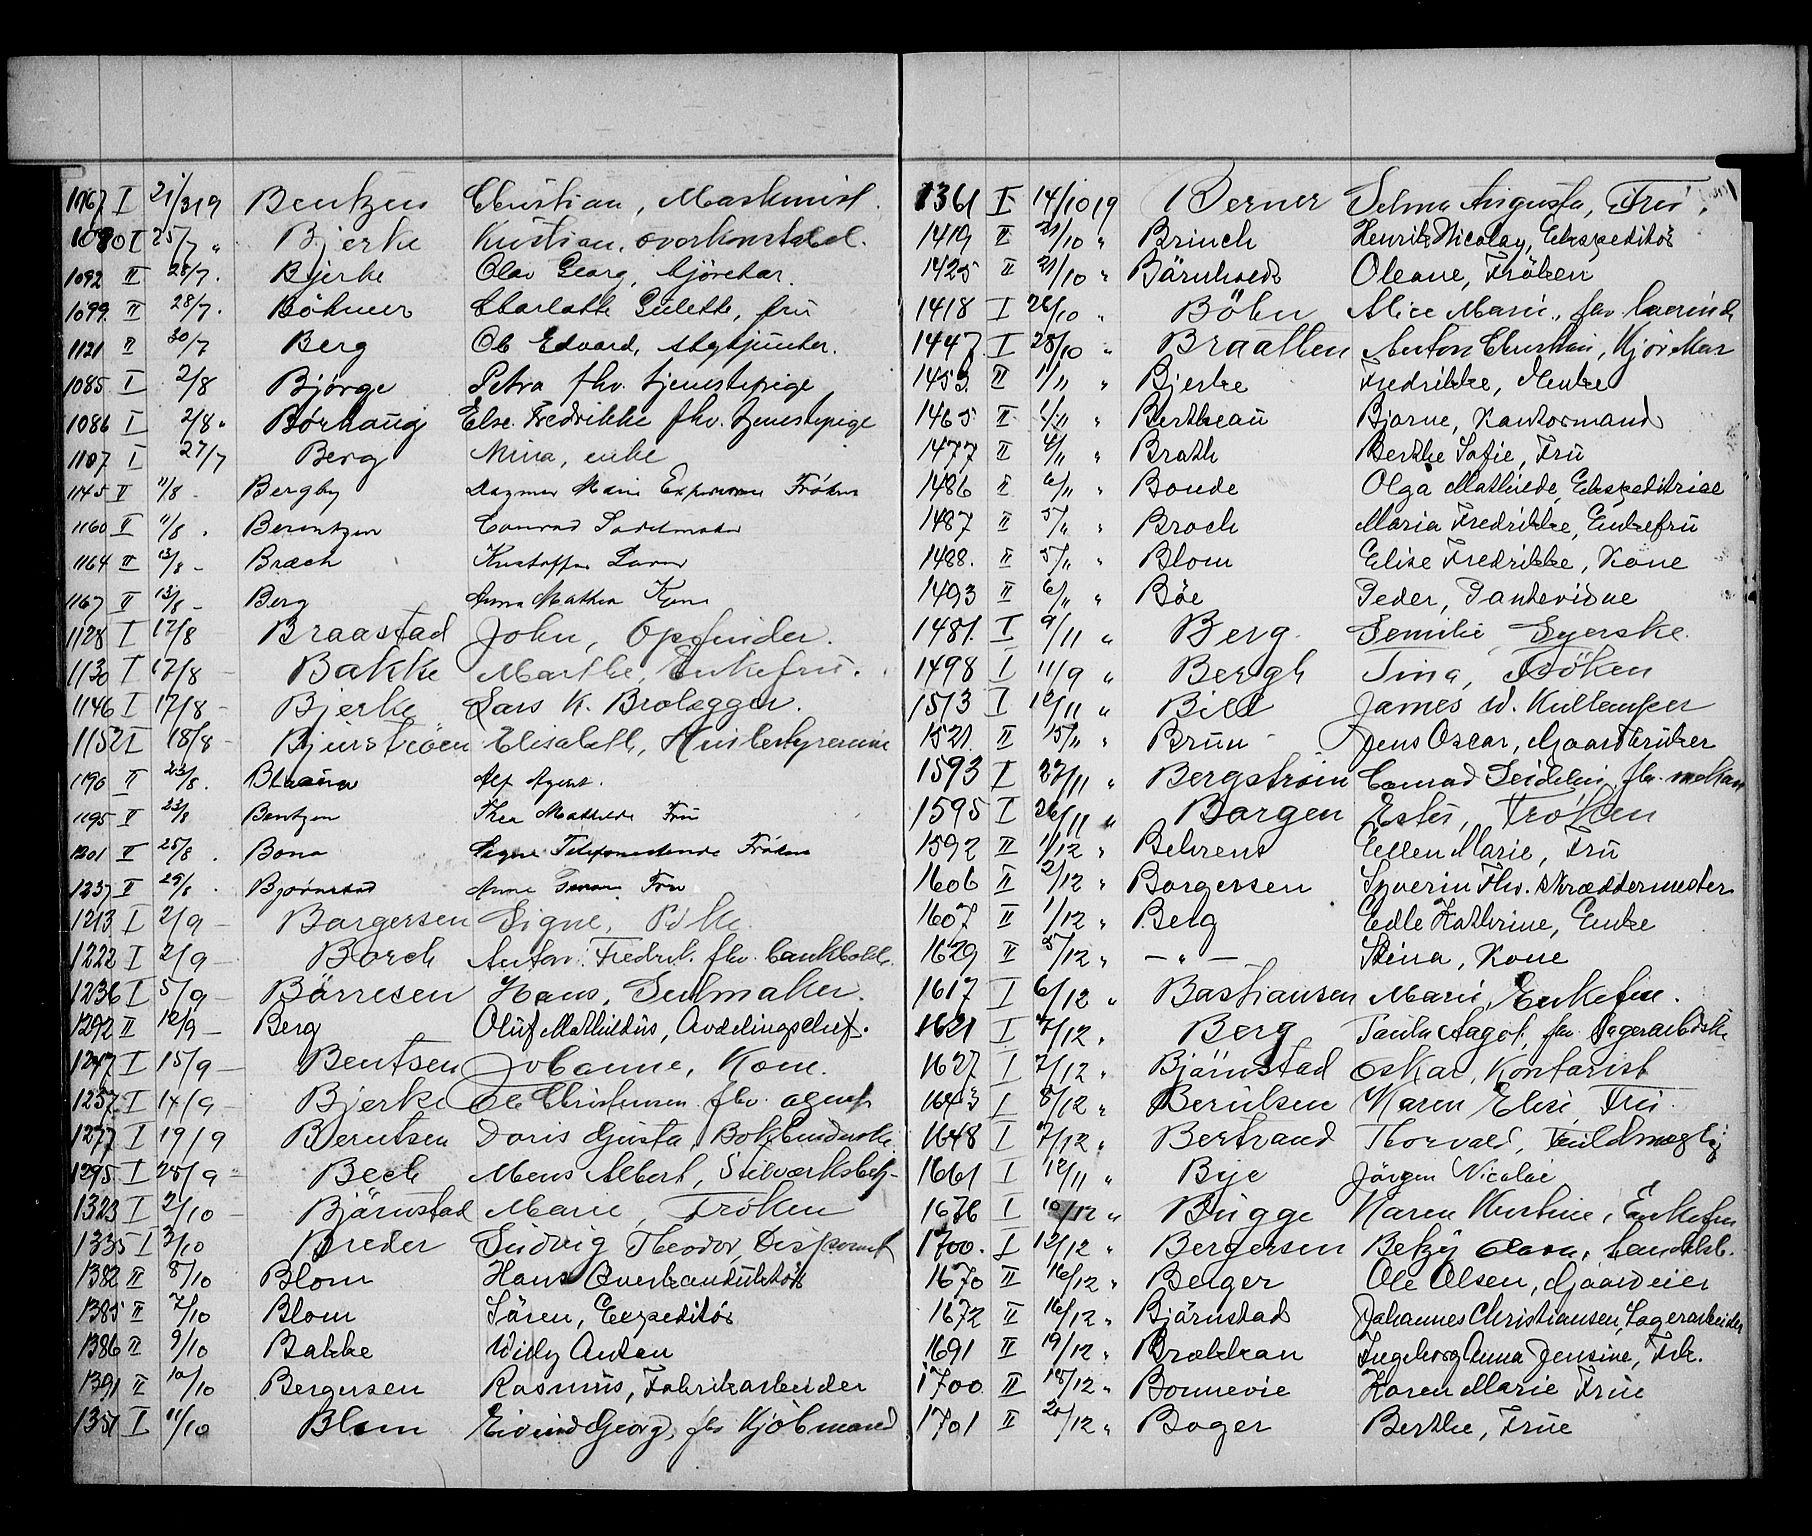 1067 I 21/3 19 Bentzen Christian, Maskinist.
1080 I 25/7 " Bjerke Kristian, overkonstabel.
1092 II 28/7. Bjerke Olav Georg, kjörekar.
1099. II 28/7. Böhmer Charlotte Gulette, fru
1121 II 30/7 Berg Ole Edvard,
1085 I 2/8 Bjørge Petra fhv. tjenestepige
1086 I 2/8 " Børhaug Else Fredrikke fhv. tjenestepige
1107 I 27/7 Berg Nina, enke
1145 II 11/8 - Bergby Dagmar Marie Frøken
1160 II 11/8 . Berentzen Conrad Sadelmaker
1164 II 13/8 - Bræch Kristoffer
1167 II 13/8 - Berg Anna Mathea Kone
1128 I 17/8 Braastad John, Opsynder.
1130 I 17/8 - Bakke Marthe, Enkefru.
1146 I 17/8 - Bjerke Lars K. Brolægger.
1152 I 18/8 - Bjurstrøen Elisabeth, Husbestyrerinde
1190 II 23/8. Blaauw Alf Agent.
1195 II 23/8 Bentzen Thea Mathilde Fru
1201 II 25/8. Bona Signe Telefonistinde Frøken
1237 II 29/8. Bjørnstad Anne Fru
1213 I 2/9 - Borgersen Signe, Pike.
1222 I 2/9 - Borch Anton Fredrik fhv.
1236 I 5/9 - Børresen Hans, Seilmaker.
1292 II 12/9 - Berg Oluf Mathildus, Avdelingschef.
1247 I 15/9 - Bentsen Johanne, Kone.
1257 I 14/9 - Bjerke Ole Christensen fhv. agent
1277 I 19/9 Berntsen Doris Gusta, Bokbinderske
1295 I 25/9 - Bech Mons Albert,
1323 I 2/10 - Bjørnstad Marie, Frøken
1335 I 3/10 Breder Ludvig Theodor, Disponent
1382 II 8/10 Blom Hans Overkonduktör
1385 II 7/10 Blom Sören, Expeditör
1386 II 9/10 Bakke Willy Anton
1391 II 10/10 Bergersen Rasmus, Fabrikarbeider
1351 I 11/10 Blom Eivind Georg, fhv Kjöbmand
1361 I 14/10 19 Berner Selma Augusta, Fru.
1419 II 21/10 " Brinch Henrik Nicolay, Ekspeditör
1425 II 21/10 " Bärnholdt Oleane, Fröken
1418 I 26/10 " Böhn Alice Marie, fhv.
1447. I 28/10 " Braathen Anton Christian, Kjörekar
1453. II 1/11 " Bjerke Fredrikke, Enke
1465 II 1/11 " Bertheau Bjarne, Kontormand
1477 II 4/11 " Brath Berthe Sofie, Fru
1486 II 6/11 " Bonde Olga Mathilde, Ekspeditrice
1487 II 5/11 " Broch Maria Fredrikke, Enkefru
1488. II 5/11 " Blom Elise Fredrikke, Kone
1493 II 6/11 " Böe Peder, Pantevidne
1481. I 9/11 " Berg Semilie, Syerske.
1498 I 11/9 " Bergh Tina, Fröken
1513 I 12/11 " Bill James W. Kullemper
1521. II 15/11 " Brun Jens Oscar, Gaardbruker
1593 I 27/11 " Bergstrøm Conrad Seidelin, fhv.
1595 I 26/11 " Borgen Ester, Frøken
1592 II 1/12 " Behrens Ellen Marie, Fru
1606 II 2/12 " Borgersen Syverin Fhv. skræddermester
1607 II 1/12 " Berg Edle Kathrine, Enke
1629 II 5/12 " - " - Stina, Kone
1617 I 6/12 " Bastiansen Marie, Enkefru.
1621 I 7/12 " Berg Paula Aagot, fhv. Lagerarbeiderske
1627 I 7/12 " Bjørnstad Oskar, Kontorist
1643 I 8/12 " Berulsen Karen Elise Fru.
1648 I 7/12 " Bertrand Thorvald,
1661 I 12/11 " Bye Jörgen Nicolai
1676 I 10/12 " Bugge Karen Kristine, Enkefru
1700. I 12/12 " Bergersen Betzy Olava,
1670 II 16/12 " Berger Ole Olsen, Gaardeier
1672 II 16/12 " Bjørnstad Johannes Christiansen, Lagerarbeider
1691 II 19/12 " Brækkan Ingeborg Anna Jensine, Frk.
1700 II 18/12 " Bonnevie Karen Marie Frue
1701 II 20/12 " Boger Berthe, Frue